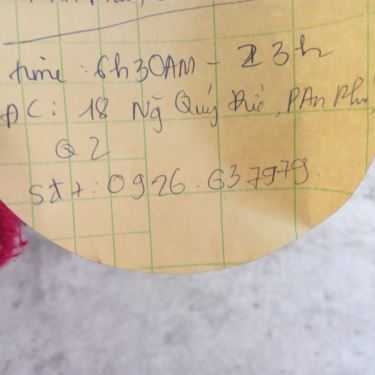 time : 6h30AM - 23h
ĐC : 18 Ng Quý Đức, P An Phú
Q 2
Sđt : 0926.637979.